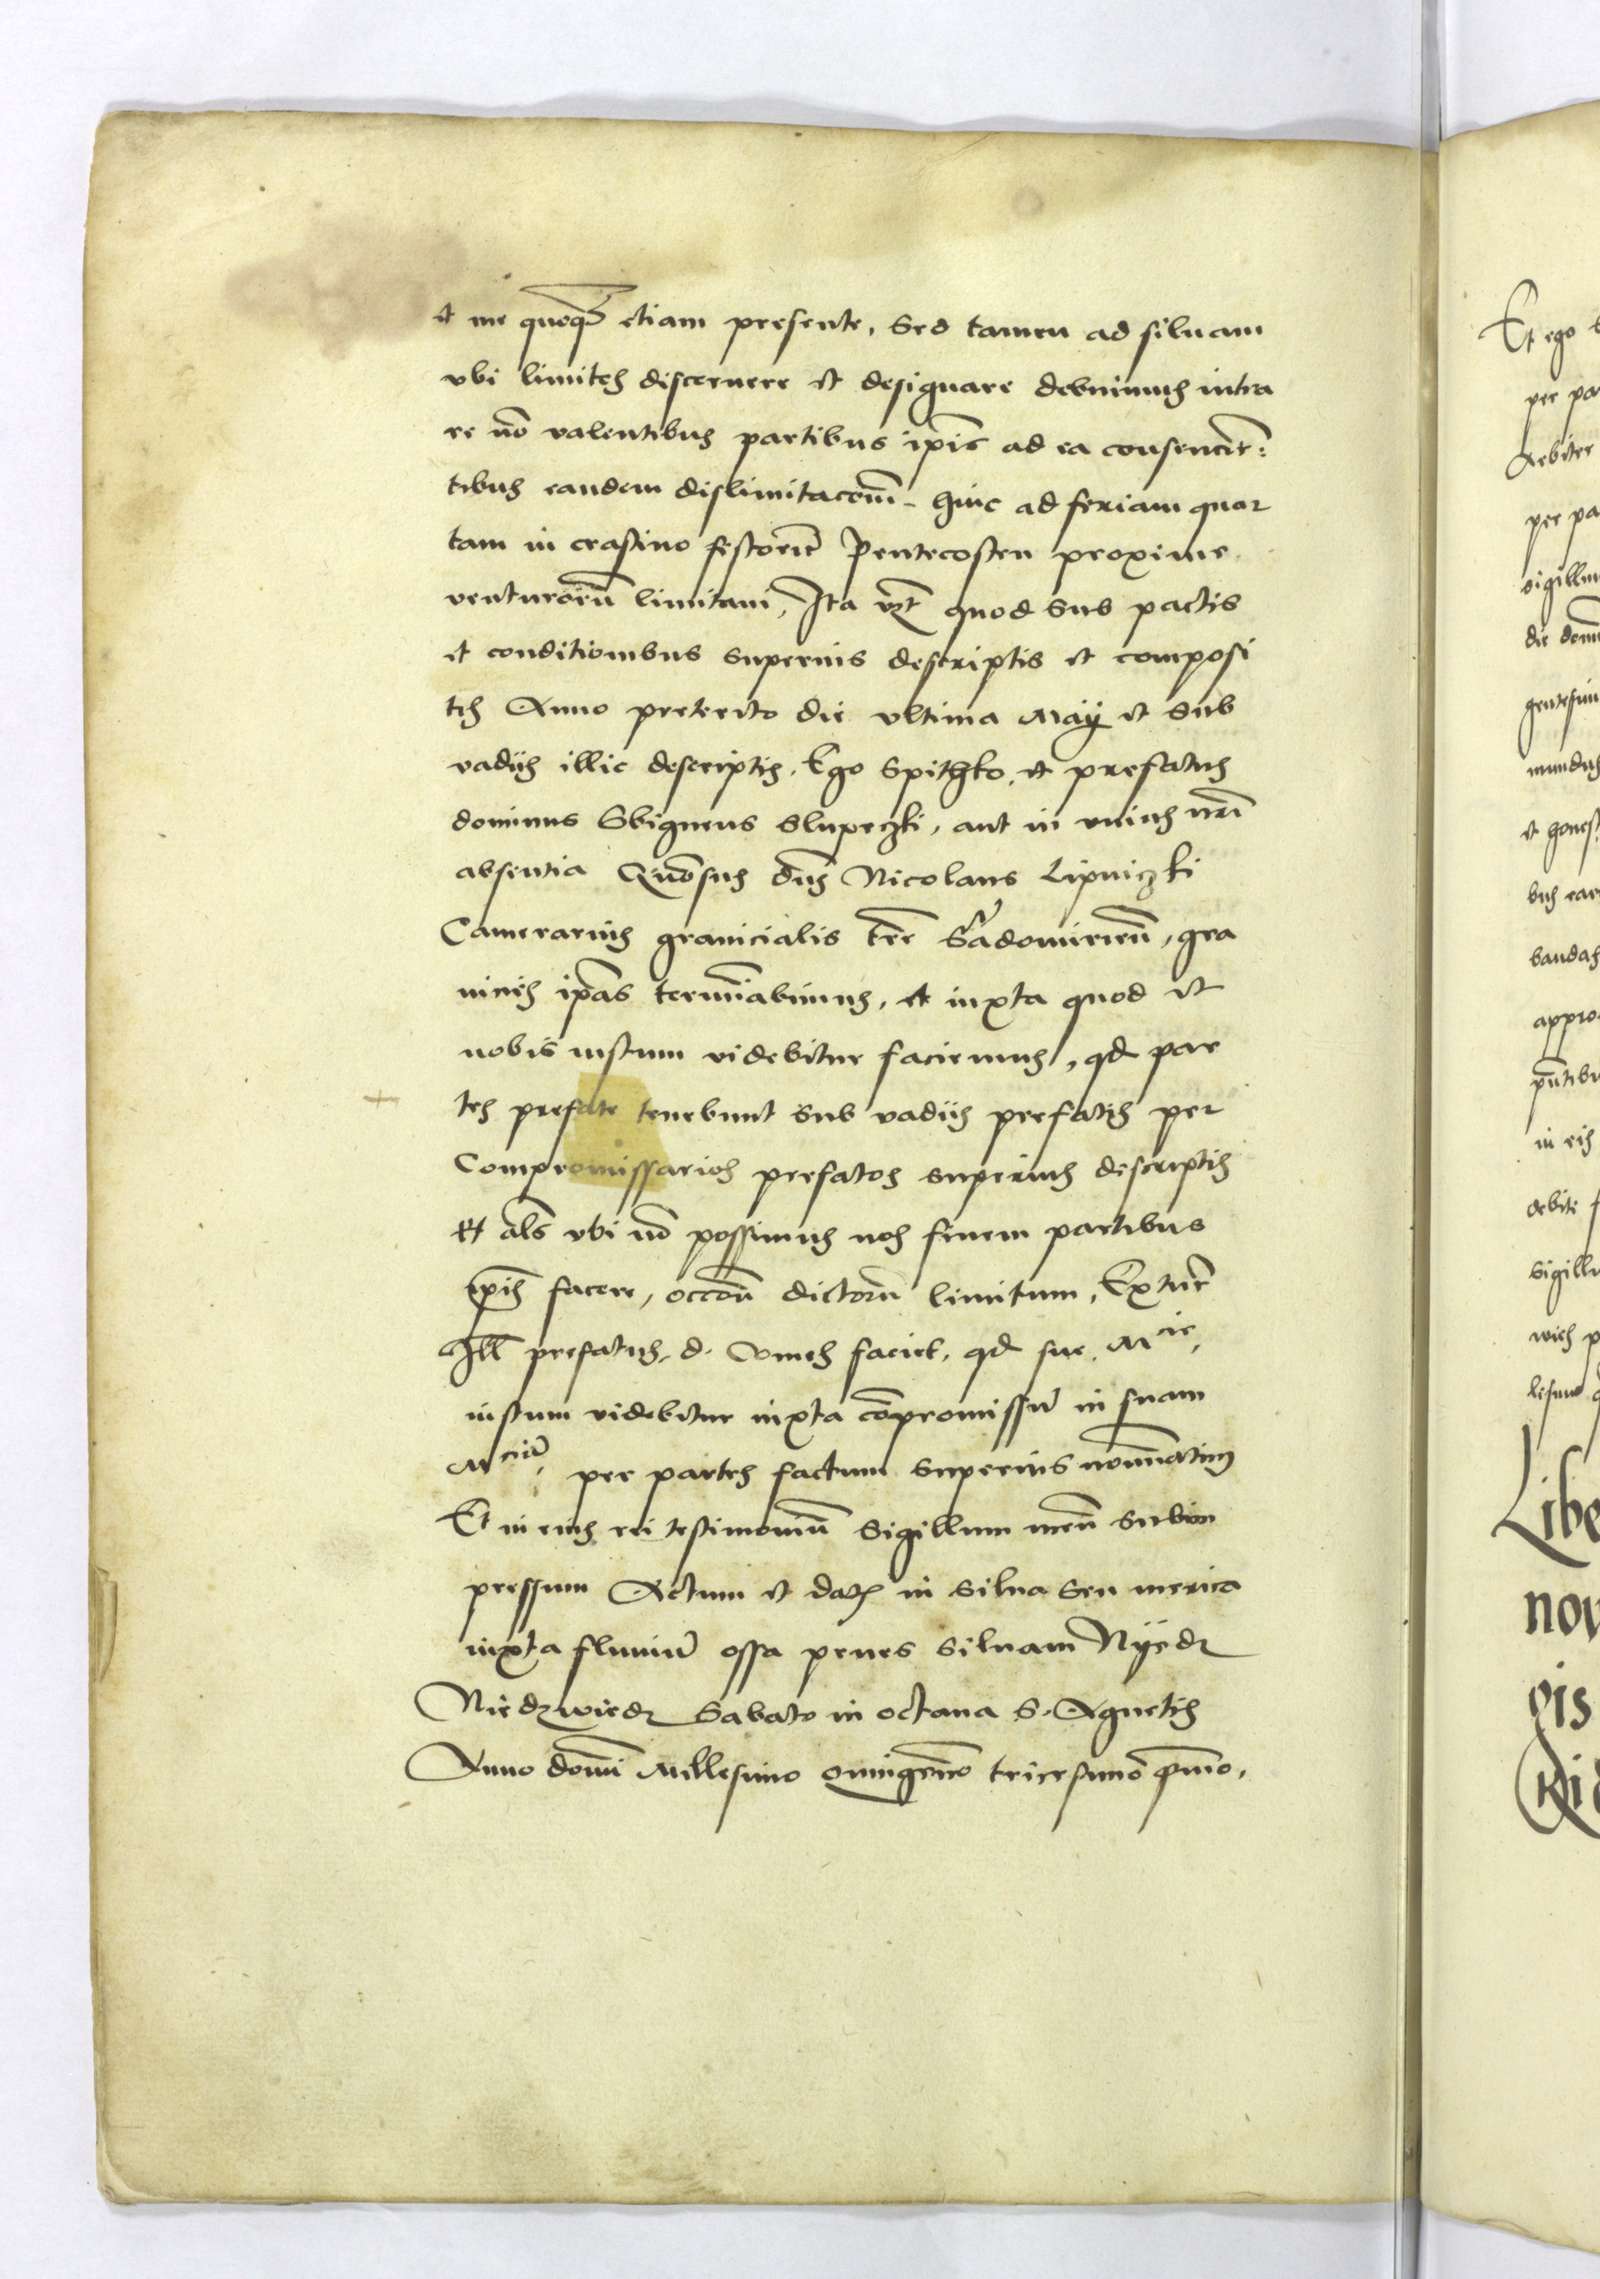 et me quoqꝫ etiam presente, Sed tamen ad siluam
vbi limites discernere et designare debuimus intra
re nō valentibus partibus ip̄is ad ea consencien:
tibus eandem dislimitacōem̄ hinc ad feriam quar
tam in crastino festorū Pentecosten proxime
venturorū limitaui, Ita vꝫt quod sub pactis
et conditionibus superius descriptis et composi
tis Anno preterito die vltima Maÿ et sub
vadijs illic descriptis. Ego Spithko et prefatus
dominus Sbigneus Slupeczki, aut in vnius nr̄i
absentia dn̄s Nicolaus Lipniczki
Camerarius granicialis tr̄e Sādomirien̄, gra
nicies ip̄as termīabimus, et iuxta quod et
nobis iustum videbitur faciemus, qd par
tes prefate tenebunt sub vadijs prefatis per
Compromissarios prefatos superius descriptis
Et al̄s vbi nō possimus nos finem partibus
ip̄is facere, occōne dictorū limitum, Extunc
Ill prefatus d. faciet, qd sue Mcie,
iustum videbitur iuxta cōpromissū in suam
Mciā, per partes factum superius nomīatim
Et in eius rei testimoniū Sigillum meū subim
pressum Actum et dat in silua seu merica
iuxta fluuiū ossa penes siluam Nÿedz
Niedzwiedz Sabato in octaua S. Agnetis
Anno domi Millesimo quingen̄o tricesimo p̄mo.
Et ego
per par
Arbiter
per pa
sigillum
die
gentesim
mundus
et
bus ear
bandas
appro
in eis
debite
sigillu
wich p
Libe
nov
gis